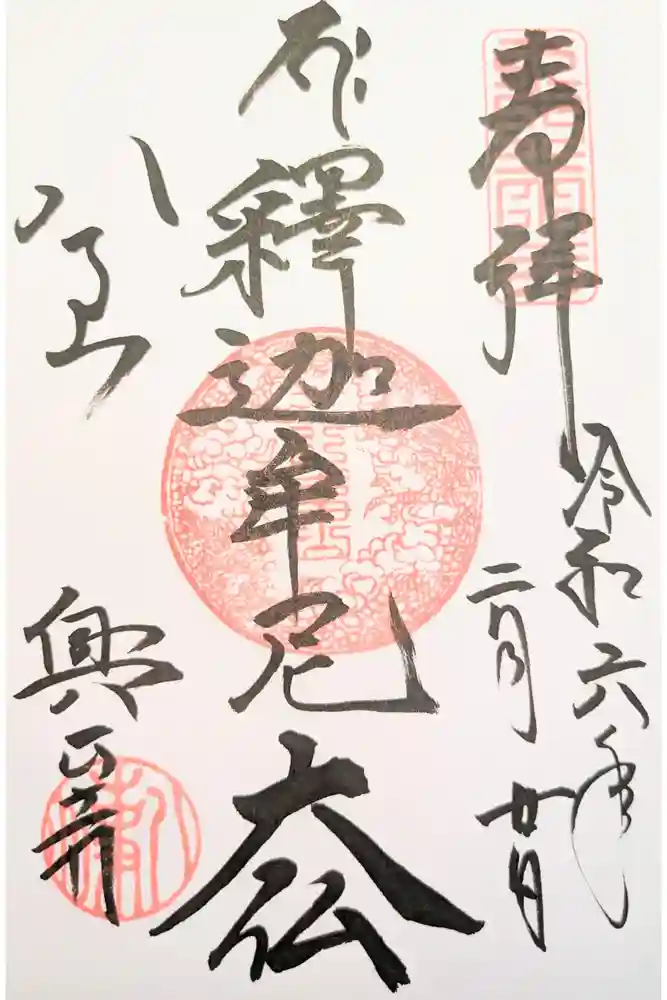 奉拝
令和六年
二月廿日
釋迦牟尼大仏
八事山
興正寺